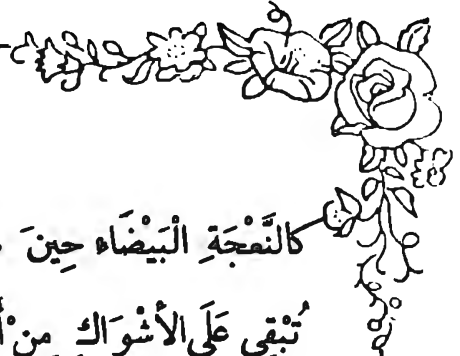 كالنَّعْجَةِ الْبَيْضَاء حِينَ
تُبْقِي عَلَى الأَشْوَاكِ مِنْ